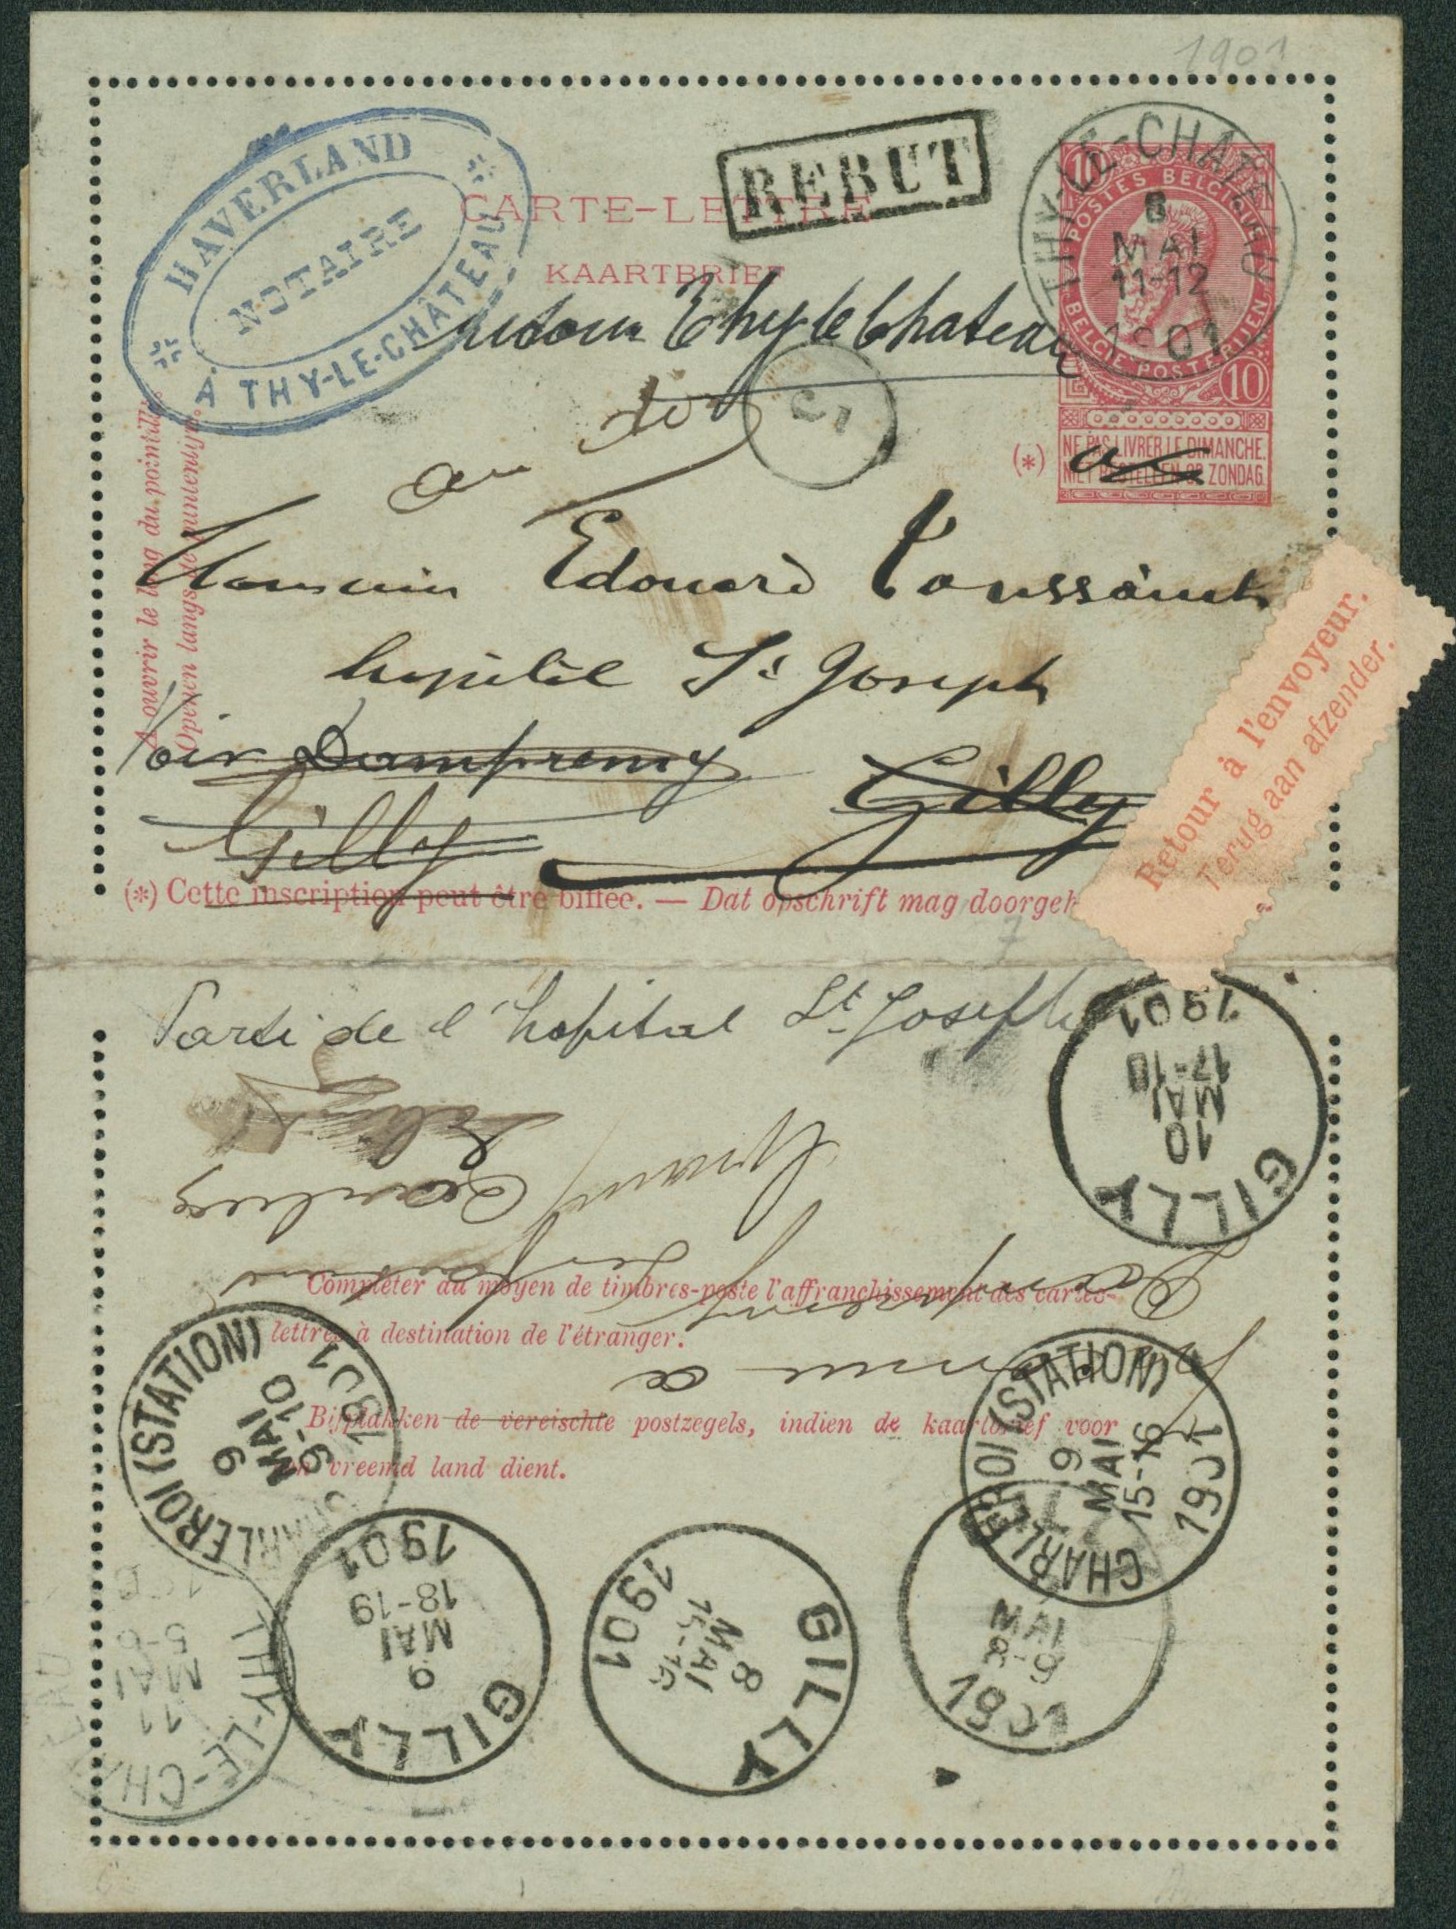 1901
HAVERLAND
NOTAIRE
A THY-LE-CHÂTEAU
REBUT
CARTE-LETTRE
KAARTBRIEF
THY-LE-CHATEAU
8
MAI
11-12
1901
10
POSTES BELGIQUE
BELGIE POSTERIJEN
10
NE PAS LIVRER LE DIMANCHE.
NIET BESTELLEN OP ZONDAG.
(*)
Thy le Chateau
A ouvrir le long du pointillé.
Openen langs de
au
Edouard Toussaint
hopital St Joseph
Voir Dampremy
Gilly
Gilly
Retour à l'envoyeur.
Terug aan afzender.
(*) Cette inscription peut être biffée. — Dat opschrift mag
7
Parti de l'hopital St. Joseph
GILLY
10
MAI
17-18
1901
Inconnu a
Compléter du moyen de timbres-poste l'affranchissement des cartes-
lettres à destination de l'étranger.
Bijplakken de vereischte postzegels, indien de kaartbrief voor
vreemd land dient.
CHARLEROI (STATION)
9
MAI
9-10
1901
CHARLEROI (STATION)
9
MAI
15-16
1901
GILLY
9
MAI
18-19
1901
GILLY
8
MAI
15-16
1901
MAI
8-9
1901
THY-LE-CHATEAU
11
MAI
5-6